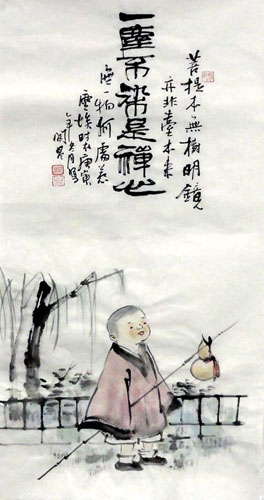 一塵不染是禪心
菩提本無樹明鏡
亦非臺本來
無一物何處惹
塵埃時在庚寅